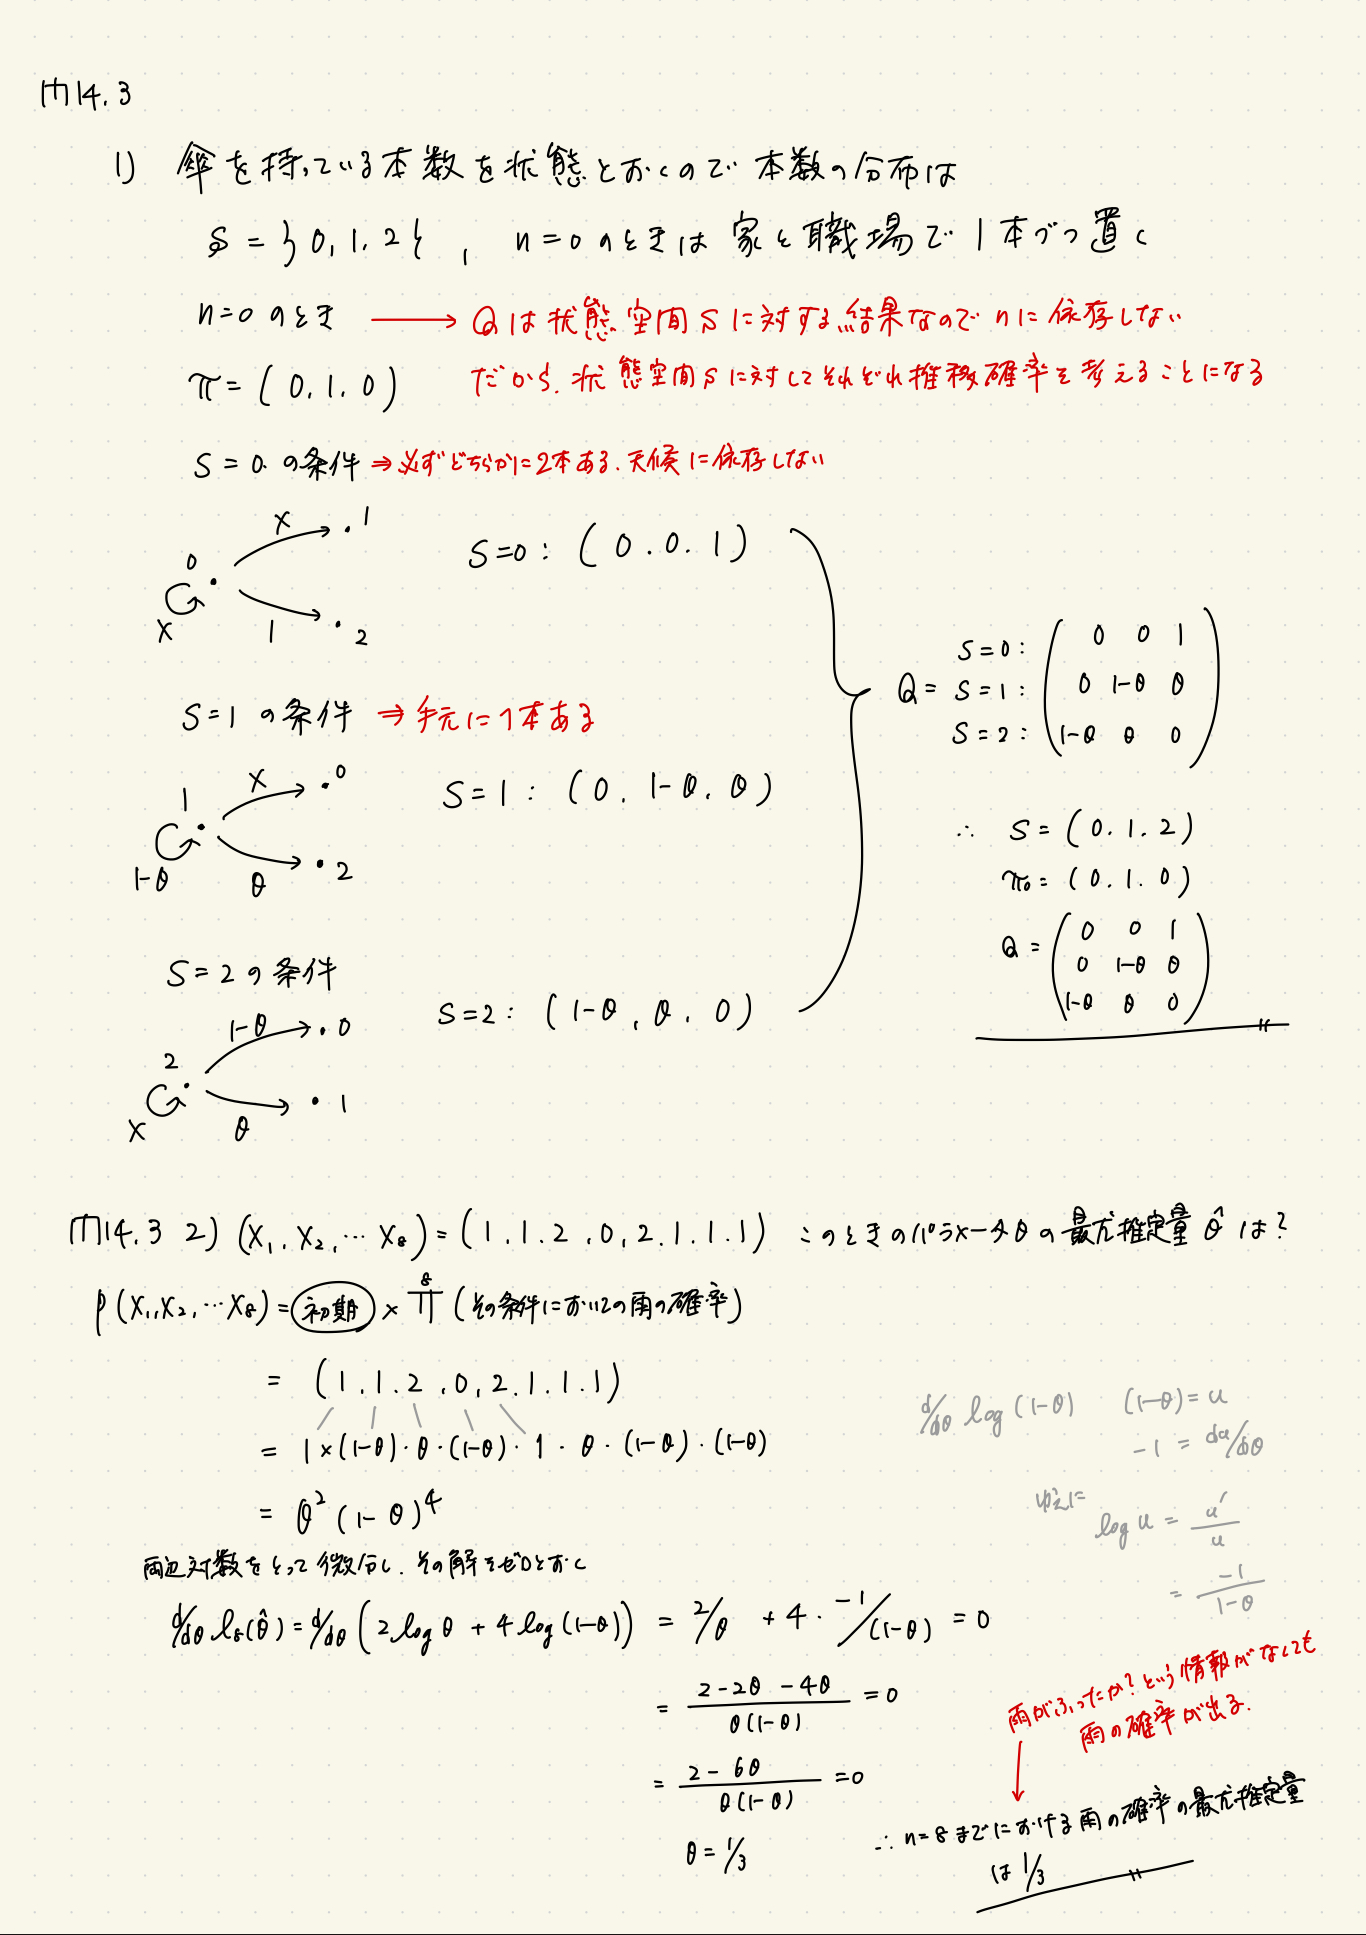 問14.3
1) 傘を持っている本数を状態とおくので本数の分布は
S = {0, 1, 2}, n=0のときは家と職場で1本づつ置く
n=0のとき → Qは状態空間Sに対する結果なのでnに依存しない
π = (0, 1, 0) だから、状態空間Sに対してそれぞれ推移確率を考えることになる
S=0の条件 ⇒ 必ずどちらかに2本ある、天候に依存しない
x ・1
0 S=0: (0, 0, 1)
x 1 ・2
S=0: ( 0 0 1 )
Q= S=1: ( 0 1-θ θ )
S=2: ( 1-θ θ 0 )
S=1の条件 ⇒ 手元に1本ある
x ・0
1 S=1: (0, 1-θ, θ)
1-θ θ ・2
∴ S=(0, 1, 2)
π₀=(0, 1, 0)
Q= ( 0 0 1
0 1-θ θ
1-θ θ 0 )
S=2の条件
1-θ ・0
2 S=2: (1-θ, θ, 0)
x θ ・1
問14.3 2) (X₁, X₂, … X₈) = (1, 1, 2, 0, 2, 1, 1, 1) このときのパラメータθの最尤推定量 θ̂ は?
P(X₁, X₂, … X₈) = 初期 × ∏⁸ (その条件においての雨の確率)
= (1, 1, 2, 0, 2, 1, 1, 1)
= 1×(1-θ)・θ・(1-θ)・1・θ・(1-θ)・(1-θ)
= θ²(1-θ)⁴
両辺対数をとって微分し、その解をゼロとおく
d/dθ l₈(θ̂) = d/dθ (2 log θ + 4 log(1-θ)) = 2/θ + 4・-1/(1-θ) = 0
= 2-2θ-4θ / θ(1-θ) = 0
= 2-6θ / θ(1-θ) = 0
θ = 1/3
d/dθ log(1-θ) (1-θ)=u
-1 = du/dθ
ゆえに
log u = u'/u
= -1/1-θ
雨がふったか?という情報がなくても
雨の確率が出る.
∴ n=8までにおける雨の確率の最尤推定量
は 1/3